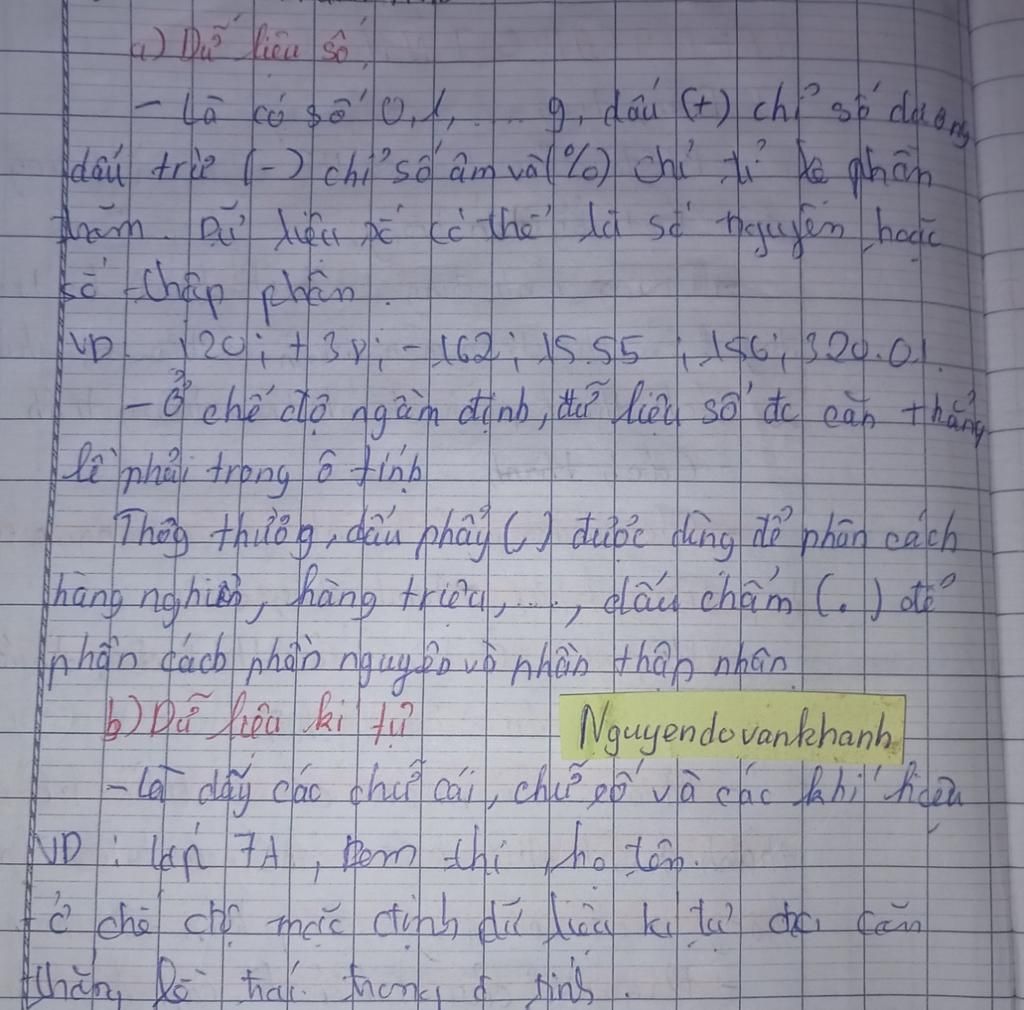 a) Dữ liệu số
- Là có số 0, 1, ... 9, dấu (+) chỉ số dương
dấu trừ (-) chỉ số âm và (%) chỉ tỉ lệ phần
trăm. Dữ liệu số có thể là số nguyên hoặc
số thập phân.
VD 120; +38; -162; 15.55; 156; 320.01.
- Ở chế độ ngầm định, dữ liệu số đc căn thẳng
lề phải trong ô tính
Thôg thườg, dấu phẩy (,) được dùng để phân cách
hàng nghìn, hàng triệu, ..., dấu chấm (.) để
phân cách phần nguyên và phần thập phân
b) Dữ liệu kí tự
Nguyendovankhanh
- Là dãy các chữ cái, chữ số và các khí hiệu
VD: Lớp 7A, Đem thi, họ tên.
+ ở chế độ mặc định dữ liệu kí tự đc căn
thẳng lề trái trong ô tính.